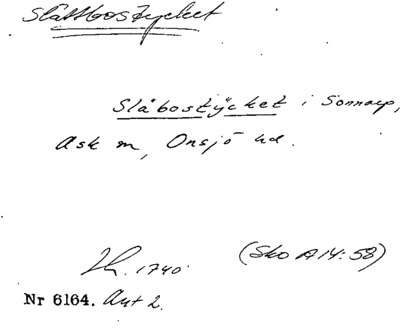 Slättbostycket
Slåbostÿcket i Sönnarp,
Ask sn, Onsjö hd.
1740 (Sko A 14:58)
Nr 6164. Avt 2.